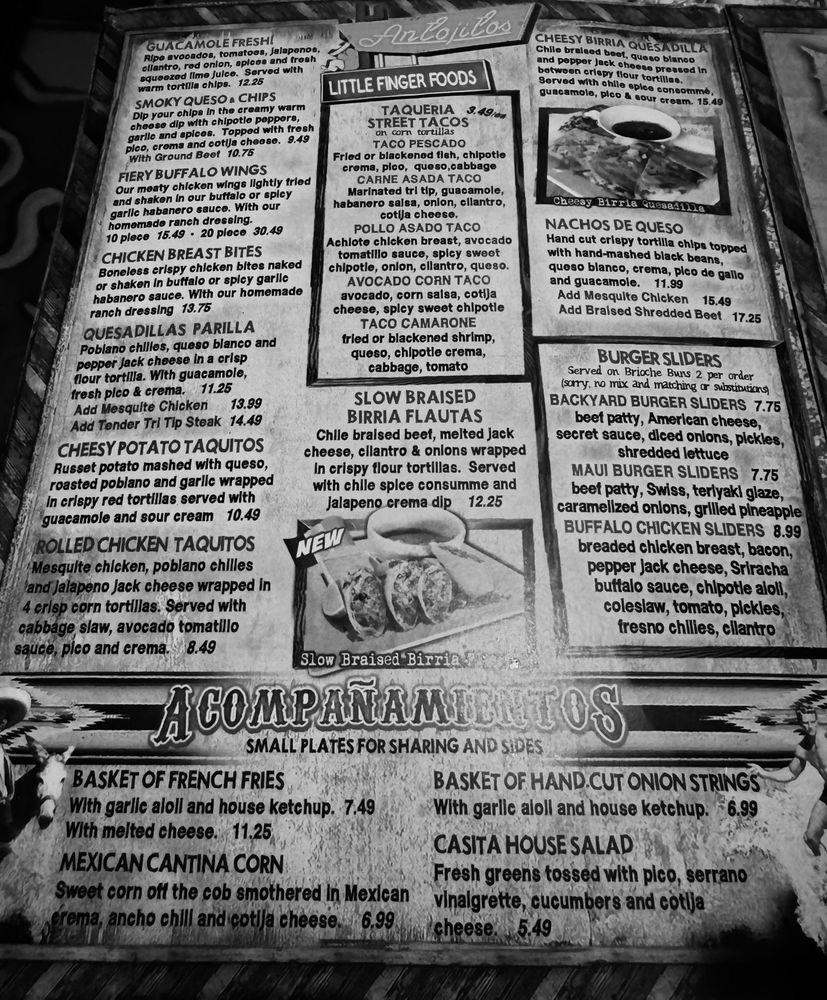 Antojitos
LITTLE FINGER FOODS
GUACAMOLE FRESH!
Ripe avocados, tomatoes, jalapenos,
cilantro, red onion, spices and fresh
squeezed lime juice. Served with
warm tortilla chips. 12.25
SMOKY QUESO & CHIPS
Dip your chips in the creamy warm
cheese dip with chipotle peppers,
garlic and spices. Topped with fresh
pico, crema and cotija cheese. 9.49
With Ground Beef 10.75
FIERY BUFFALO WINGS
Our meaty chicken wings lightly fried
and shaken in our buffalo or spicy
garlic habanero sauce. With our
homemade ranch dressing.
10 piece 15.49 • 20 piece 30.49
CHICKEN BREAST BITES
Boneless crispy chicken bites naked
or shaken in buffalo or spicy garlic
habanero sauce. With our homemade
ranch dressing 13.75
QUESADILLAS PARILLA
Poblano chilies, queso blanco and
pepper jack cheese in a crisp
flour tortilla. With guacamole,
fresh pico & crema. 11.25
Add Mesquite Chicken 13.99
Add Tender Tri Tip Steak 14.49
CHEESY POTATO TAQUITOS
Russet potato mashed with queso,
roasted poblano and garlic wrapped
in crispy red tortillas served with
guacamole and sour cream 10.49
ROLLED CHICKEN TAQUITOS
Mesquite chicken, poblano chilies
and jalapeno jack cheese wrapped in
4 crisp corn tortillas. Served with
cabbage slaw, avocado tomatillo
sauce, pico and crema. 8.49
TAQUERIA 3.49/ea
STREET TACOS
on corn tortillas
TACO PESCADO
Fried or blackened fish, chipotle
crema, pico, queso,cabbage
CARNE ASADA TACO
Marinated tri tip, guacamole,
habanero salsa, onion, cilantro,
cotija cheese.
POLLO ASADO TACO
Achiote chicken breast, avocado
tomatillo sauce, spicy sweet
chipotle, onion, cilantro, queso.
AVOCADO CORN TACO
avocado, corn salsa, cotija
cheese, spicy sweet chipotle
TACO CAMARONE
fried or blackened shrimp,
queso, chipotle crema,
cabbage, tomato
SLOW BRAISED
BIRRIA FLAUTAS
Chile braised beef, melted jack
cheese, cilantro & onions wrapped
in crispy flour tortillas. Served
with chile spice consumme and
jalapeno crema dip 12.25
NEW
Slow Braised Birria
CHEESY BIRRIA QUESADILLA
Chile braised beef, queso blanco
and pepper jack cheese pressed in
between crispy flour tortillas.
Served with chile spice consommé,
guacamole, pico & sour cream. 15.49
Cheesy Birria Quesadilla
NACHOS DE QUESO
Hand cut crispy tortilla chips topped
with hand-mashed black beans,
queso blanco, crema, pico de gallo
and guacamole. 11.99
Add Mesquite Chicken 15.49
Add Braised Shredded Beef 17.25
BURGER SLIDERS
Served on Brioche Buns 2 per order
(sorry, no mix and matching or substitutions)
BACKYARD BURGER SLIDERS 7.75
beef patty, American cheese,
secret sauce, diced onions, pickles,
shredded lettuce
MAUI BURGER SLIDERS 7.75
beef patty, Swiss, teriyaki glaze,
caramelized onions, grilled pineapple
BUFFALO CHICKEN SLIDERS 8.99
breaded chicken breast, bacon,
pepper jack cheese, Sriracha
buffalo sauce, chipotle aioli,
coleslaw, tomato, pickles,
fresno chilies, cilantro
ACOMPAÑAMIENTOS
SMALL PLATES FOR SHARING AND SIDES
BASKET OF FRENCH FRIES
With garlic aioli and house ketchup. 7.49
With melted cheese. 11.25
MEXICAN CANTINA CORN
Sweet corn off the cob smothered in Mexican
crema, ancho chili and cotija cheese. 6.99
BASKET OF HAND-CUT ONION STRINGS
With garlic aioli and house ketchup. 6.99
CASITA HOUSE SALAD
Fresh greens tossed with pico, serrano
vinaigrette, cucumbers and cotija
cheese. 5.49